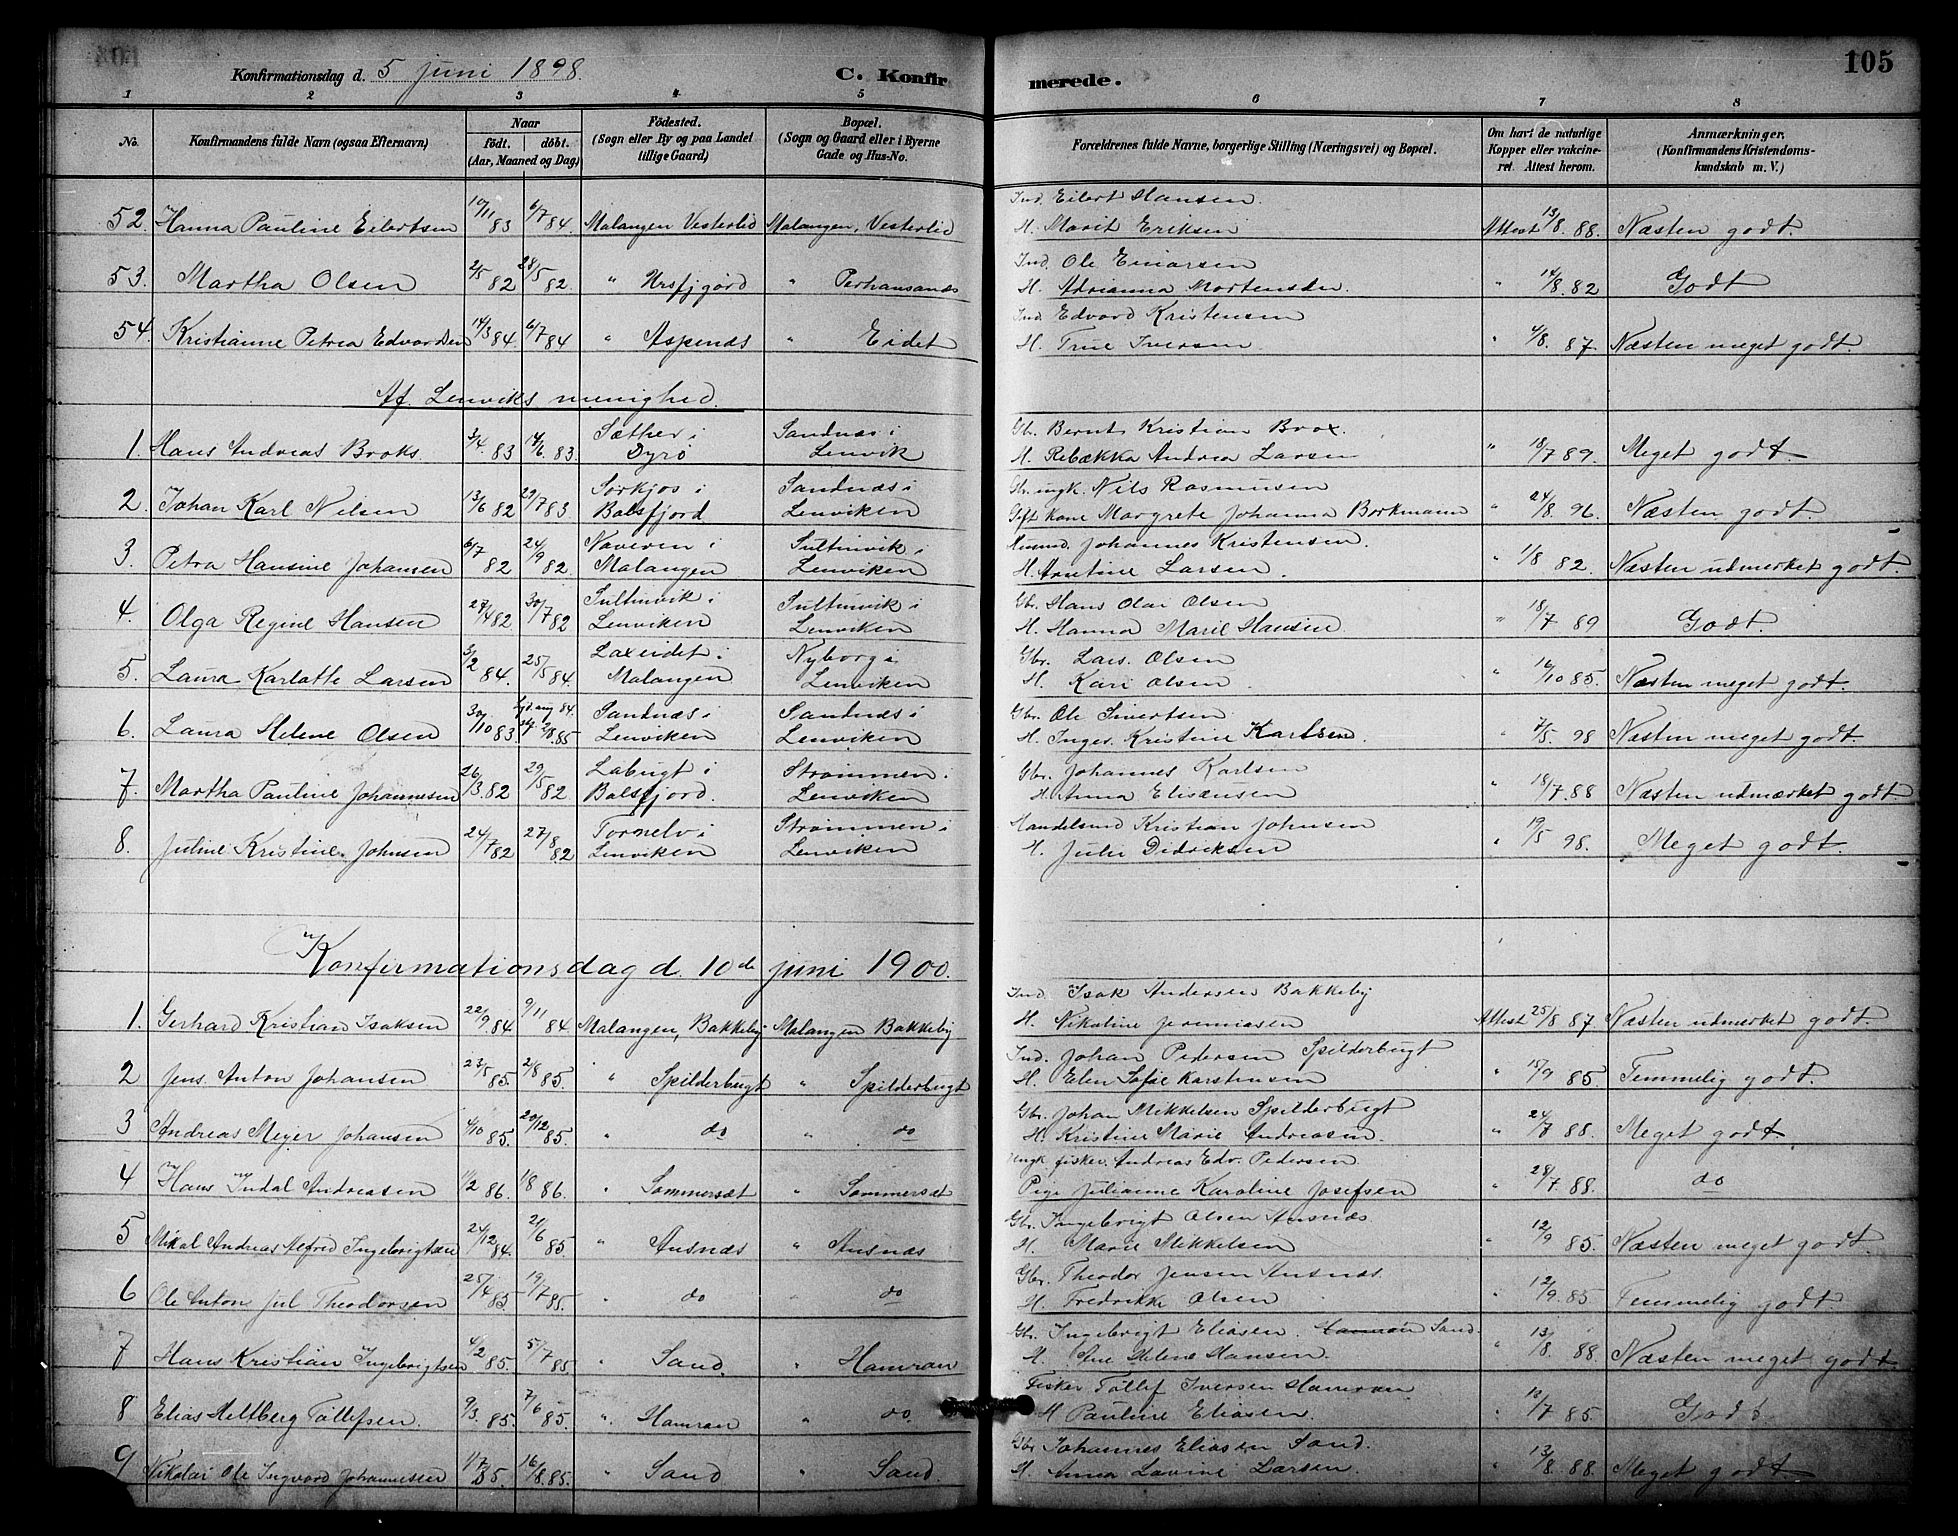 Konfirmationsdag d. 5 Juni 1898. C. Konfirmerede. 105
1 2 3 4 5 6 7 8
No. Konfirmandens fulde Navn (ogsaa Efternavn) Naar födt. döbt. (Aar, Maaned og Dag) Födested. (Sogn eller By og paa Landet tillige Gaard) Bopæl. (Sogn og Gaard eller i Byerne Gade og Hus-No. Forældrenes fulde Navne, borgerlige Stilling (Næringsvei) og Bopæl. Om havt de naturlige Kopper eller vakcineret. Attest herom. Anmærkninger. (Konfirmandens Kristendomskundskab m. V.)
52. Hanna Pauline Eilertsen 10/11 83 6/7 84. Malangen Vesterlid Malangen, Vesterlid Ind. Eilert Hansen H. Marit Eriksen Attest 13/8. 88. Næsten godt.
53. Martha Olsen 2/5 82 28/5 82. " Ursfjgord " Perhansanæs Ind. Ole Einarsen H. Adrianna Mortensen. " 14/8. 82 Godt
54. Kristianne Petrea Edvardsen 14/3 84. 6/7 84 " Aspenæs " Eidet Ind. Edvard Kristensen H. Trine Iversen. " 4/8. 87. Næsten meget godt.
Af Lenviks menighed.
1. Hans Andreas Broks. 3/4. 83 14/6. 83. Sæther i Dyrö Sandnæs i Lenvik Gb. Bernt Kristian Brox. H. Rebækka Andrea Larsen " 18/7 89. Meget godt.
2. Johan Karl Nilsen 13/6 82 29/7 83 Sörkjos i Balsfjord Sandnæs i Lenviken Gbr. ungk. Nils Rasmusen Gift Kone Margrete Johanna Borkmann " 24/8. 96. Næsten godt.
3. Petra Hansine Johansen 6/7 82 24/9 82. Naveren i Malangen Sultinvik i Lenviken Husmd. Johannes Kristensen. H. Arntine Larsen. " 11/8 82. Næsten udmerket godt.
4. Olga Regine Hansen 27/4 82 30/7 82 Sultinvik i Lenviken Sultinvik i Lenviken Gbr. Hans Olai Olsen H. Hanna Marie Hansen " 18/7 89 Godt.
5. Laura Karlotte Larsen 3/2 84. 25/5 84. Laxeidet i Malangen Nyborg i Lenviken Gbr. Lars Olsen H. Kari Olsen " 16/10 85. Næsten meget godt.
6. Laura Helene Olsen 30/10 83. 2/8. 85 Sandnæs i Lenviken Sandnæs i Lenviken Gbr. Ole Sivertsen H. Inges. Kristine Karlsen. " 7/5. 98 Næsten meget godt.
7. Martha Pauline Johannesen 26/3. 82 29/5 82 Labugt i Balsfjord. Strömmen i Lenviken Gbr. Johannes Karlsen H. Anna Elisæusen " 18/7. 88 Næsten udmærket godt.
8. Juline Kristine Johnsen 24/7 82 27/8 82 Tornelv i Lenviken Strømmen i Lenviken Handelsmd Kristian Johnsen H. Julie Didriksen " 19/5 98. Meget godt.
Konfirmationsdag d. 10de juni 1900.
1. Gerhard Kristian Isaksen 22/9 84 9/11 84. Malangen, Bakkeby Malangen Bakkeby Ind. Isak Andersen Bakkeby H. Nikoline Jeremiasen Attest 25/8 87 Næsten udmerket godt.
2 Jens Anton Johansen 23/5 85. 2/8 85. " Spilderbugt " Spilderbugt Ind. Johan Pedersen Spilderbugt H. Elen Sofie Karstensen " 15/9 85. Temmelig godt.
3 Andreas Meyer Johansen 4/10 85. 29/12 85. " do " do Gbr. Johan Mikkelsen Spilderbugt H. Kristine Marie Andreasen. " 24/7 88. Meget godt.
4 Hans Indal Andreasen 11/2 86. 1/8 86. " Sommersæt " Sommersæt Ungk. fisker. Andreas Edv. Pedersen Pige Julianne Karoline Josefsen " 28/7. 88. do
5 Mikal Andreas Alfred Ingebrigtsen 24/12 84. 21/6 85. " Ansnæs " Ansnæs Gbr. Ingebrigt Olsen Ansnæs. H. Marie Mikkelsen " 12/9 85. Næsten meget godt.
6 Ole Anton Jul Theodorsen 25/4 85. 19/7 85. " do " do Gbr. Theodor Jensen Ansnæs. H. Fredrikke Olsen " 12/9. 85. Temmelig godt.
7 Hans Kristian Ingebrigtsen 4/2 85. 5/7 85. " Sand. " Hamran Gbr. Ingebrigt Eliasen. Hamran Sand. H. Ane Helene Hansen " 13/8 88. Næsten meget godt.
8 Elias Heltberg Tollefsen. 9/3. 85. 7/6 85. " Hamran " do. Fisker Tollef Iversen Hamran H Pauline Eliasen. " 10/7 85. Godt
9 Nikolai Ole Ingvard Johannessen 11/7 85. 16/8. 85. " Sand " Sand. Gbr Johannes Eliasen Sand. H. Anna Lavine Larsen. " 13/8. 88. Meget godt.